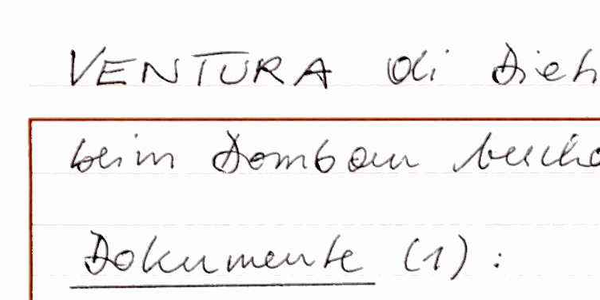 VENTURA di Dieh
beim Dombau
Dokumente (1):